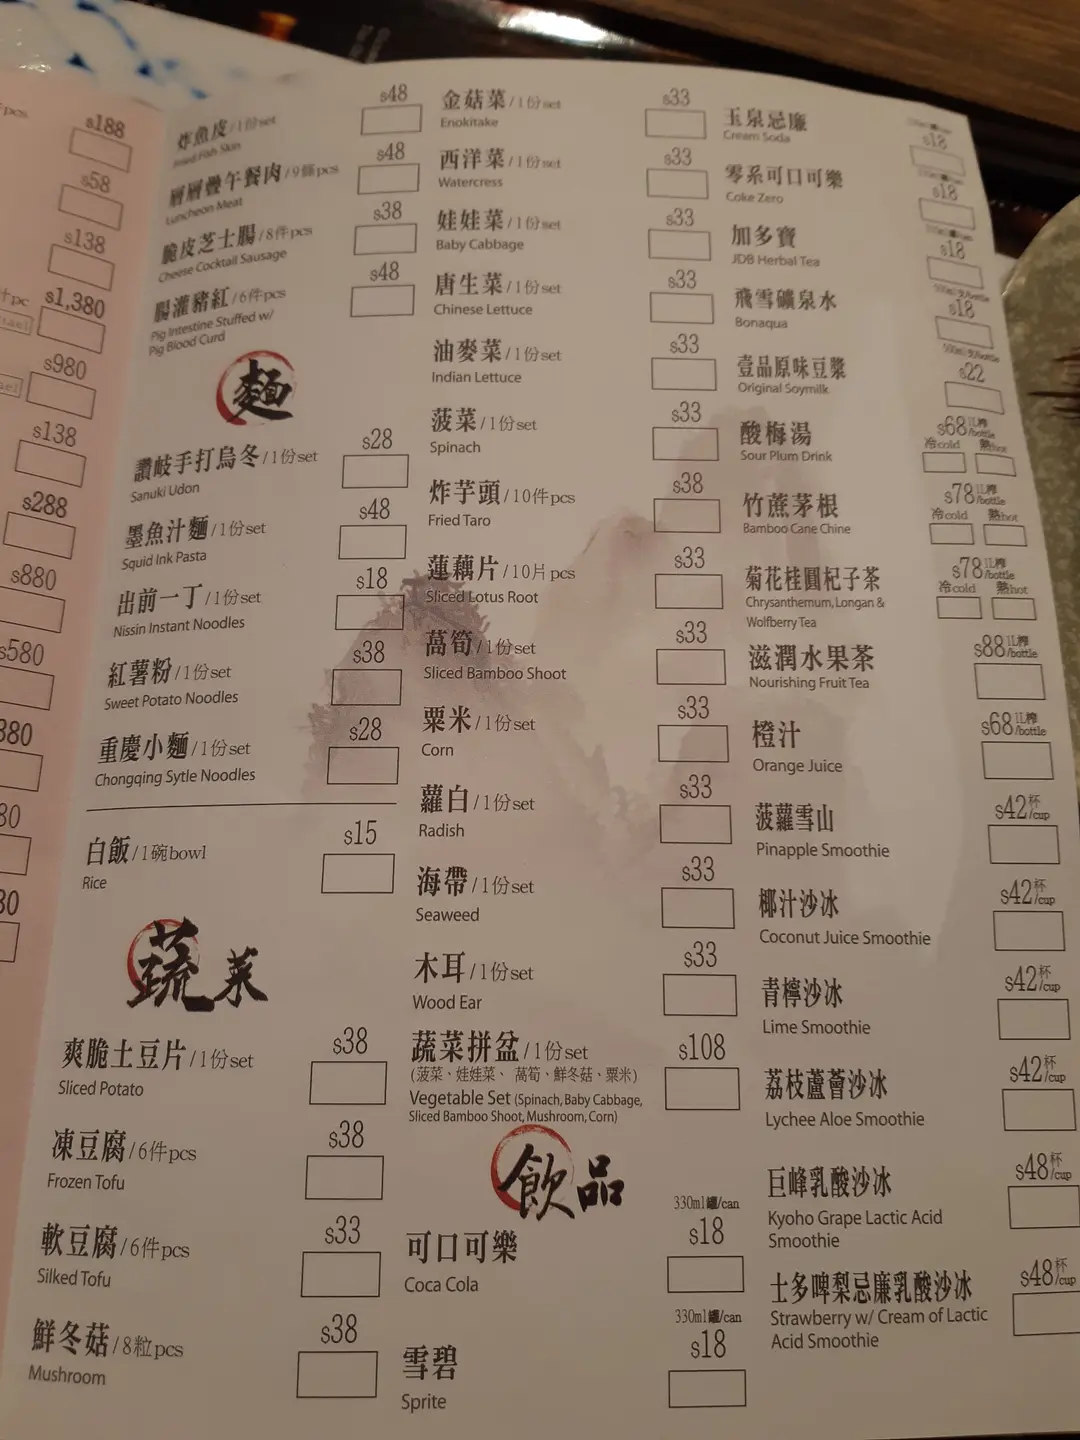 pcs
$188
$58
$138
$1,380
$980
$138
$288
$880
$580
炸魚皮/1份set
$48
Fried Fish Skin
層層疊午餐肉/9條pcs
$48
Luncheon Meat
脆皮芝士腸/8件pcs
$38
Cheese Cocktail Sausage
腸灌豬紅/6件pcs
$48
Pig Intestine Stuffed w/
Pig Blood Curd
麵
讚岐手打烏冬/1份set
$28
Sanuki Udon
墨魚汁麵/1份set
$48
Squid Ink Pasta
出前一丁/1份set
$18
Nissin Instant Noodles
紅薯粉/1份set
$38
Sweet Potato Noodles
重慶小麵/1份set
$28
Chongqing Sytle Noodles
白飯/1碗bowl
$15
Rice
蔬菜
爽脆土豆片/1份set
$38
Sliced Potato
凍豆腐/6件pcs
$38
Frozen Tofu
軟豆腐/6件pcs
$33
Silked Tofu
鮮冬菇/8粒pcs
$38
Mushroom
金菇菜/1份set
$33
Enokitake
西洋菜/1份set
$33
Watercress
娃娃菜/1份set
$33
Baby Cabbage
唐生菜/1份set
$33
Chinese Lettuce
油麥菜/1份set
$33
Indian Lettuce
菠菜/1份set
$33
Spinach
炸芋頭/10件pcs
$38
Fried Taro
蓮藕片/10片pcs
$33
Sliced Lotus Root
萵筍/1份set
$33
Sliced Bamboo Shoot
粟米/1份set
$33
Corn
蘿白/1份set
$33
Radish
海帶/1份set
$33
Seaweed
木耳/1份set
$33
Wood Ear
蔬菜拼盆/1份set
$108
(菠菜、娃娃菜、萵筍、鮮冬菇、粟米)
Vegetable Set (Spinach, Baby Cabbage,
Sliced Bamboo Shoot, Mushroom, Corn)
飲品
330ml罐/can
可口可樂
$18
Coca Cola
330ml罐/can
雪碧
$18
Sprite
玉泉忌廉
$18
Cream Soda
零系可口可樂
$18
Coke Zero
加多寶
$18
JDB Herbal Tea
飛雪礦泉水
500ml支/bottle
$18
Bonaqua
壹品原味豆漿
500ml支/bottle
$22
Original Soymilk
酸梅湯
$68 1L樽/bottle
冷cold 熱hot
Sour Plum Drink
竹蔗茅根
$78 1L樽/bottle
冷cold 熱hot
Bamboo Cane Chine
菊花桂圓杞子茶
$78 1L樽/bottle
冷cold 熱hot
Chrysanthemum, Longan &
Wolfberry Tea
滋潤水果茶
$88 1L樽/bottle
Nourishing Fruit Tea
橙汁
$68 1L樽/bottle
Orange Juice
菠蘿雪山
$42杯/cup
Pinapple Smoothie
椰汁沙冰
$42杯/cup
Coconut Juice Smoothie
青檸沙冰
$42杯/cup
Lime Smoothie
荔枝蘆薈沙冰
$42杯/cup
Lychee Aloe Smoothie
巨峰乳酸沙冰
$48杯/cup
Kyoho Grape Lactic Acid
Smoothie
士多啤梨忌廉乳酸沙冰
$48杯/cup
Strawberry w/ Cream of Lactic
Acid Smoothie